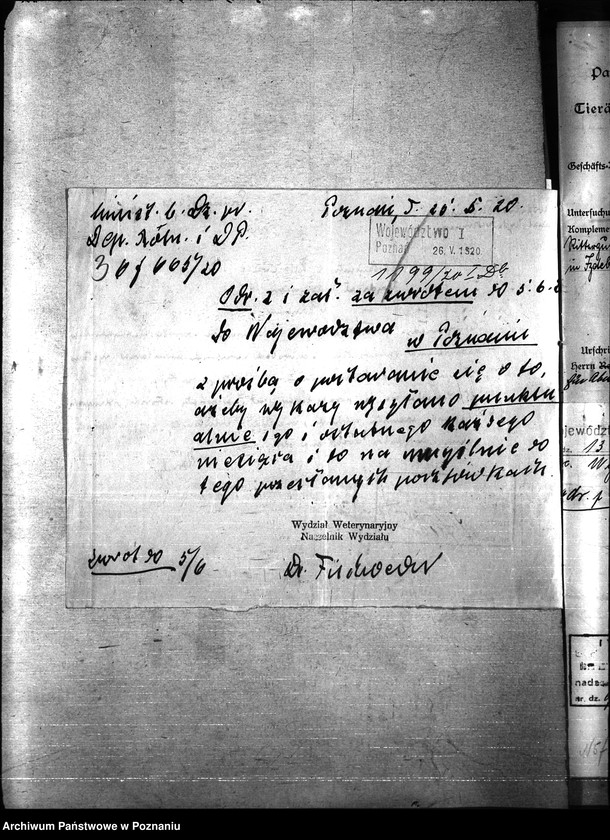 Minist. b. Dz. pr.
Dep. Roln. i D.P.
3 6 f 665/20
Poznań, d. 5. 20.
Województwo I
Poznań 26. V. 1920
1199/20 I. Db
Odr. z i zał. za zwrotem do 5. 6.
do Województwa
w Poznaniu
z prośbą o postaranie się o to,
ażeby wykazy wysyłano punktu
alnie 1go i ostatniego każdego
miesiąca i to na umyślnie do
tego przesłanych pocztówkach.
Wydział Weterynaryjny
Naczelnik Wydziału
zwrot do 5/6
Dr.
Pa
Tierä
Geschäfts-
Untersuchu
Kompleme
Rittergu
in
Urschri
Herrn
jewództ
13
dr. p
nada
nr. dz.
Archiwum Państwowe w Poznaniu